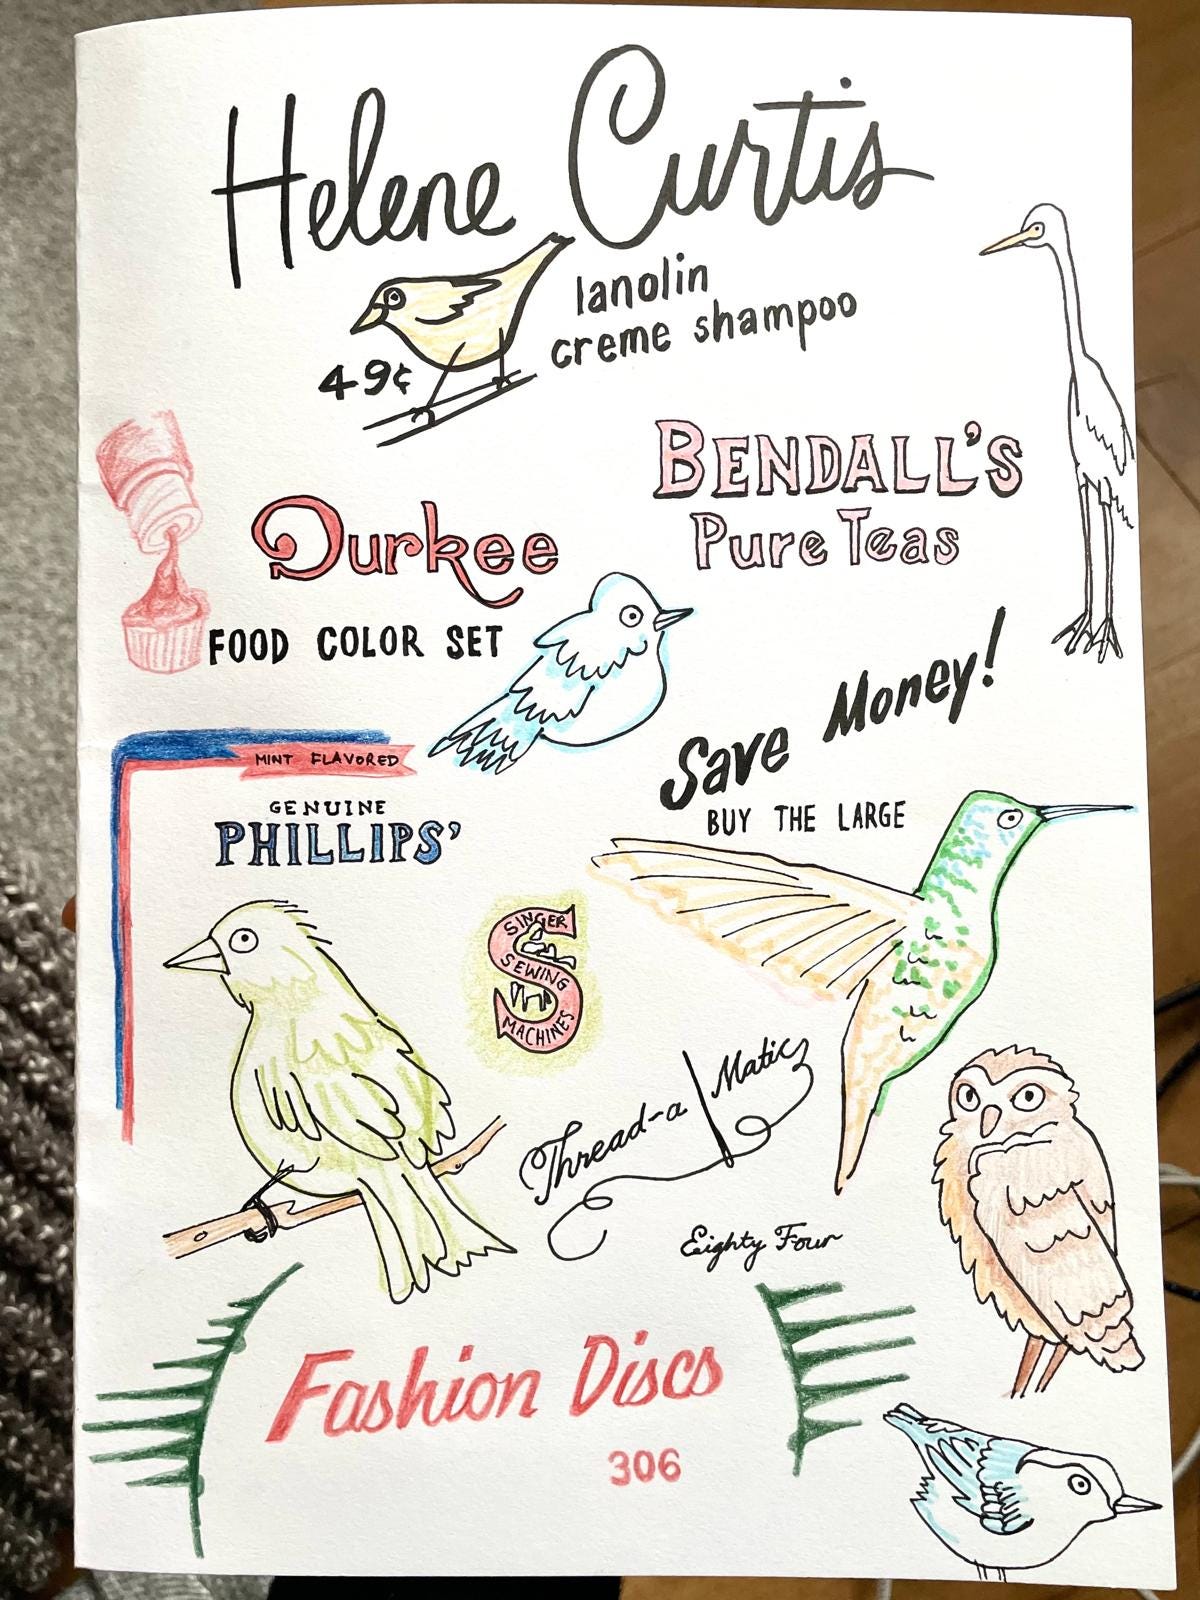 Helene Curtis
lanolin
creme shampoo
49¢
BENDALL'S
Pure Teas
Durkee
FOOD COLOR SET
Save Money!
BUY THE LARGE
MINT FLAVORED
GENUINE
PHILLIPS'
SINGER
SEWING
MACHINES
Thread-a Matic
Eighty Four
Fashion Discs
306